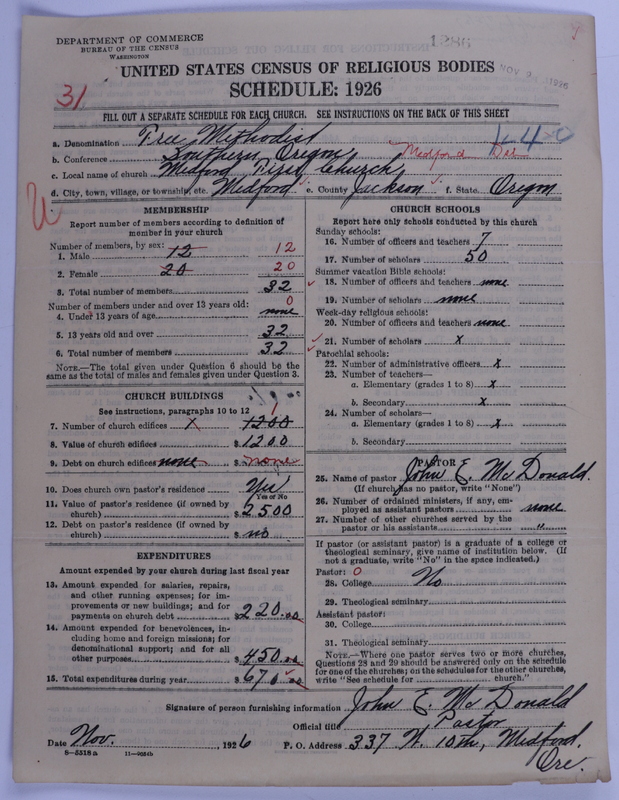 DEPARTMENT OF COMMERCE
BUREAU OF THE CENSUS
WASHINGTON
1286
UNITED STATES CENSUS OF RELIGIOUS BODIES
SCHEDULE: 1926
31
FILL OUT A SEPARATE SCHEDULE FOR EACH CHURCH. SEE INSTRUCTIONS ON THE BACK OF THIS SHEET
a. Denomination Free Methodist
b. Conference Southern Oregon
c. Local name of church Medford First Church
d. City, town, village, or township, etc. Medford e. County Jackson f. State Oregon
MEMBERSHIP
Report number of members according to definition of
member in your church
Number of members, by sex:
1. Male 12 12
2. Female 20 20
3. Total number of members 32
Number of members under and over 13 years old: 0
4. Under 13 years of age none
5. 13 years old and over 32
6. Total number of members 32
NOTE.—The total given under Question 6 should be the
same as the total of males and females given under Question 3.
CHURCH BUILDINGS
See instructions, paragraphs 10 to 12 1
7. Number of church edifices x 1200
8. Value of church edifices $ 1200
9. Debt on church edifices none $ none
10. Does church own pastor's residence Yes
Yes or No
11. Value of pastor's residence (if owned by
church) $ 2500
12. Debt on pastor's residence (if owned by
church) $ no
EXPENDITURES
Amount expended by your church during last fiscal year
13. Amount expended for salaries, repairs,
and other running expenses; for im-
provements or new buildings; and for
payments on church debt $ 220.00
14. Amount expended for benevolences, in-
cluding home and foreign missions; for
denominational support; and for all
other purposes $ 450.00
15. Total expenditures during year $ 670.00
CHURCH SCHOOLS
Report here only schools conducted by this church
Sunday schools:
16. Number of officers and teachers 7
17. Number of scholars 50
Summer vacation Bible schools:
18. Number of officers and teachers none
19. Number of scholars none
Week-day religious schools:
20. Number of officers and teachers none
21. Number of scholars x
Parochial schools:
22. Number of administrative officers x
23. Number of teachers—
a. Elementary (grades 1 to 8) x
b. Secondary x
24. Number of scholars—
a. Elementary (grades 1 to 8) x
b. Secondary
PASTOR
25. Name of pastor John E. McDonald.
(If church has no pastor, write "None")
26. Number of ordained ministers, if any, em-
ployed as assistant pastors none
27. Number of other churches served by the
pastor or his assistants "
If pastor (or assistant pastor) is a graduate of a college or
theological seminary, give name of institution below. (If
not a graduate, write "No" in the space indicated.)
Pastor: 0
28. College No
29. Theological seminary
Assistant pastor:
30. College
31. Theological seminary
NOTE.—Where one pastor serves two or more churches,
Questions 28 and 29 should be answered only on the schedule
for one of the churches; on the schedules for the other churches,
write "See schedule for church."
Signature of person furnishing information John E. McDonald
Official title Pastor
Date Nov. 1926 P. O. Address 337 N. 10th, Medford.
Ore.
8-5318 a 11-9034b